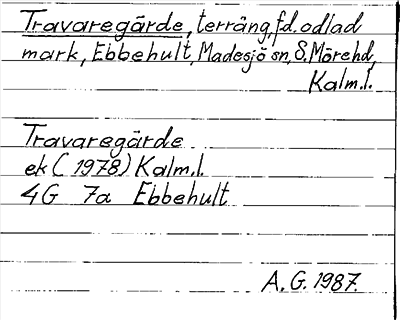 Travaregärde, terräng, fd. odlad
mark, Ebbehult, Madesjö sn, S. Möre hd,
Kalm.l.
Travaregärde
ek (1978) Kalm.l.
4G 7a Ebbehult
A. G. 1987.